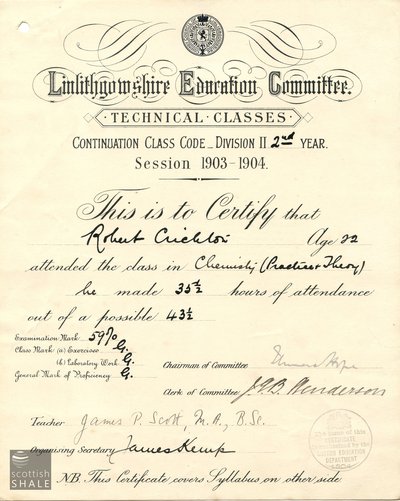 Linlithgowshire Education Committee.
TECHNICAL CLASSES
CONTINUATION CLASS CODE_DIVISION II 2nd YEAR.
Session 1903-1904.
This is to Certify that
Robert Crichton Age 22
attended the class in Chemistry (Practical & Theory)
he made 35½ hours of attendance
out of a possible 43½
Examination Mark 59%
Class Mark (a) Exercises G.
(b) Laboratory Work G.
General Mark of Proficiency G.
Chairman of Committee
Clerk of Committee J.G.B. Henderson
Teacher James P. Scott, M.A., B.Sc.
Organising Secretary James Kemp
N.B. This Certificate covers Syllabus on other side
scottish
SHALE